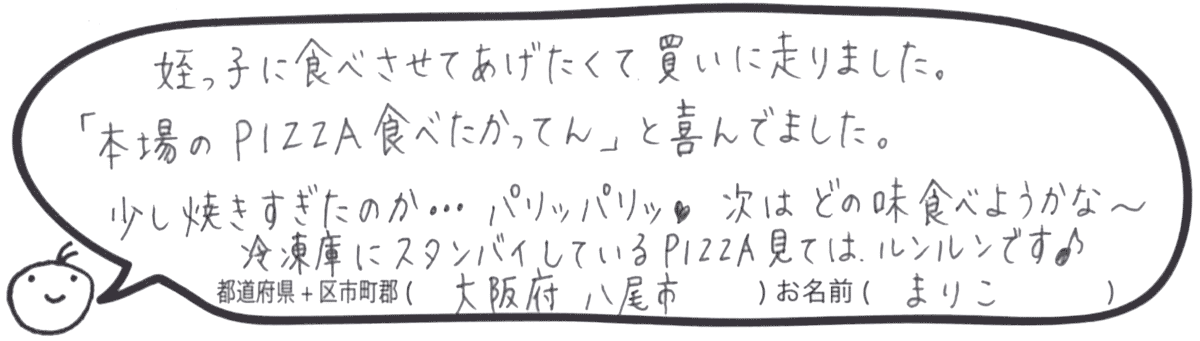 姪っ子に食べさせてあげたくて買いに走りました。
「本場のPIZZA食べたかってん」と喜んでました。
少し焼きすぎたのか… パリッパリッ♥ 次は どの味食べようかな〜
冷凍庫にスタンバイしているPIZZA見ては、ルンルンです♪
都道府県+区市町郡( 大阪府 八尾市 )お名前( まりこ )